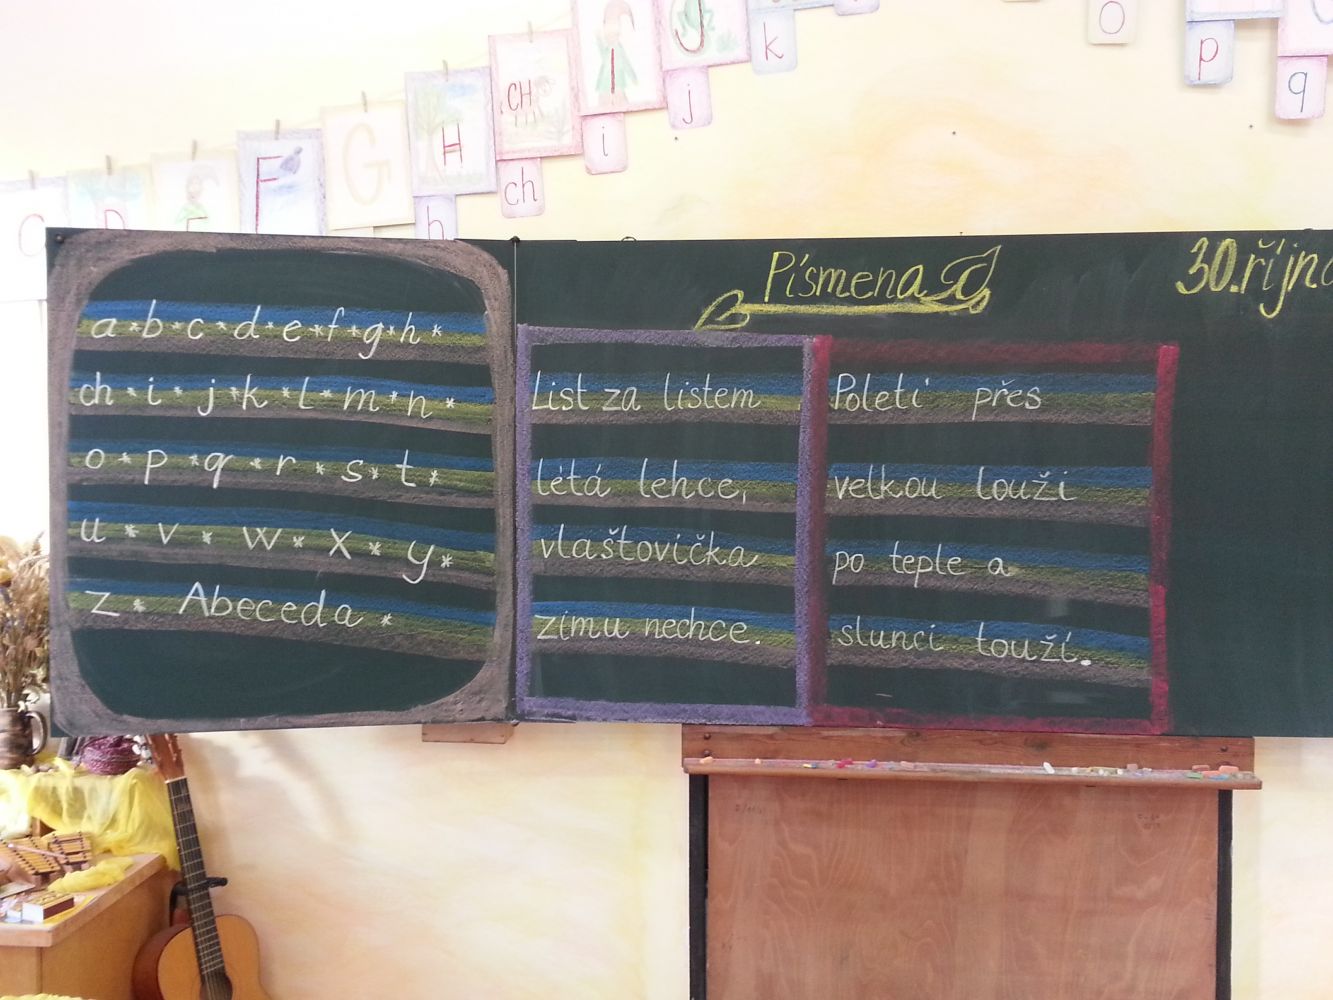 C D E F G H CH I J
h ch i j k o p q
Písmena
30. října
a * b * c * d * e * f * g * h *
ch * i * j * k * l * m * n *
o * p * q * r * s * t *
u * v * w * x * y *
z * Abeceda *
List za listem
létá lehce,
vlaštovička
zimu nechce.
Poletí přes
velkou louži
po teple a
slunci touží.